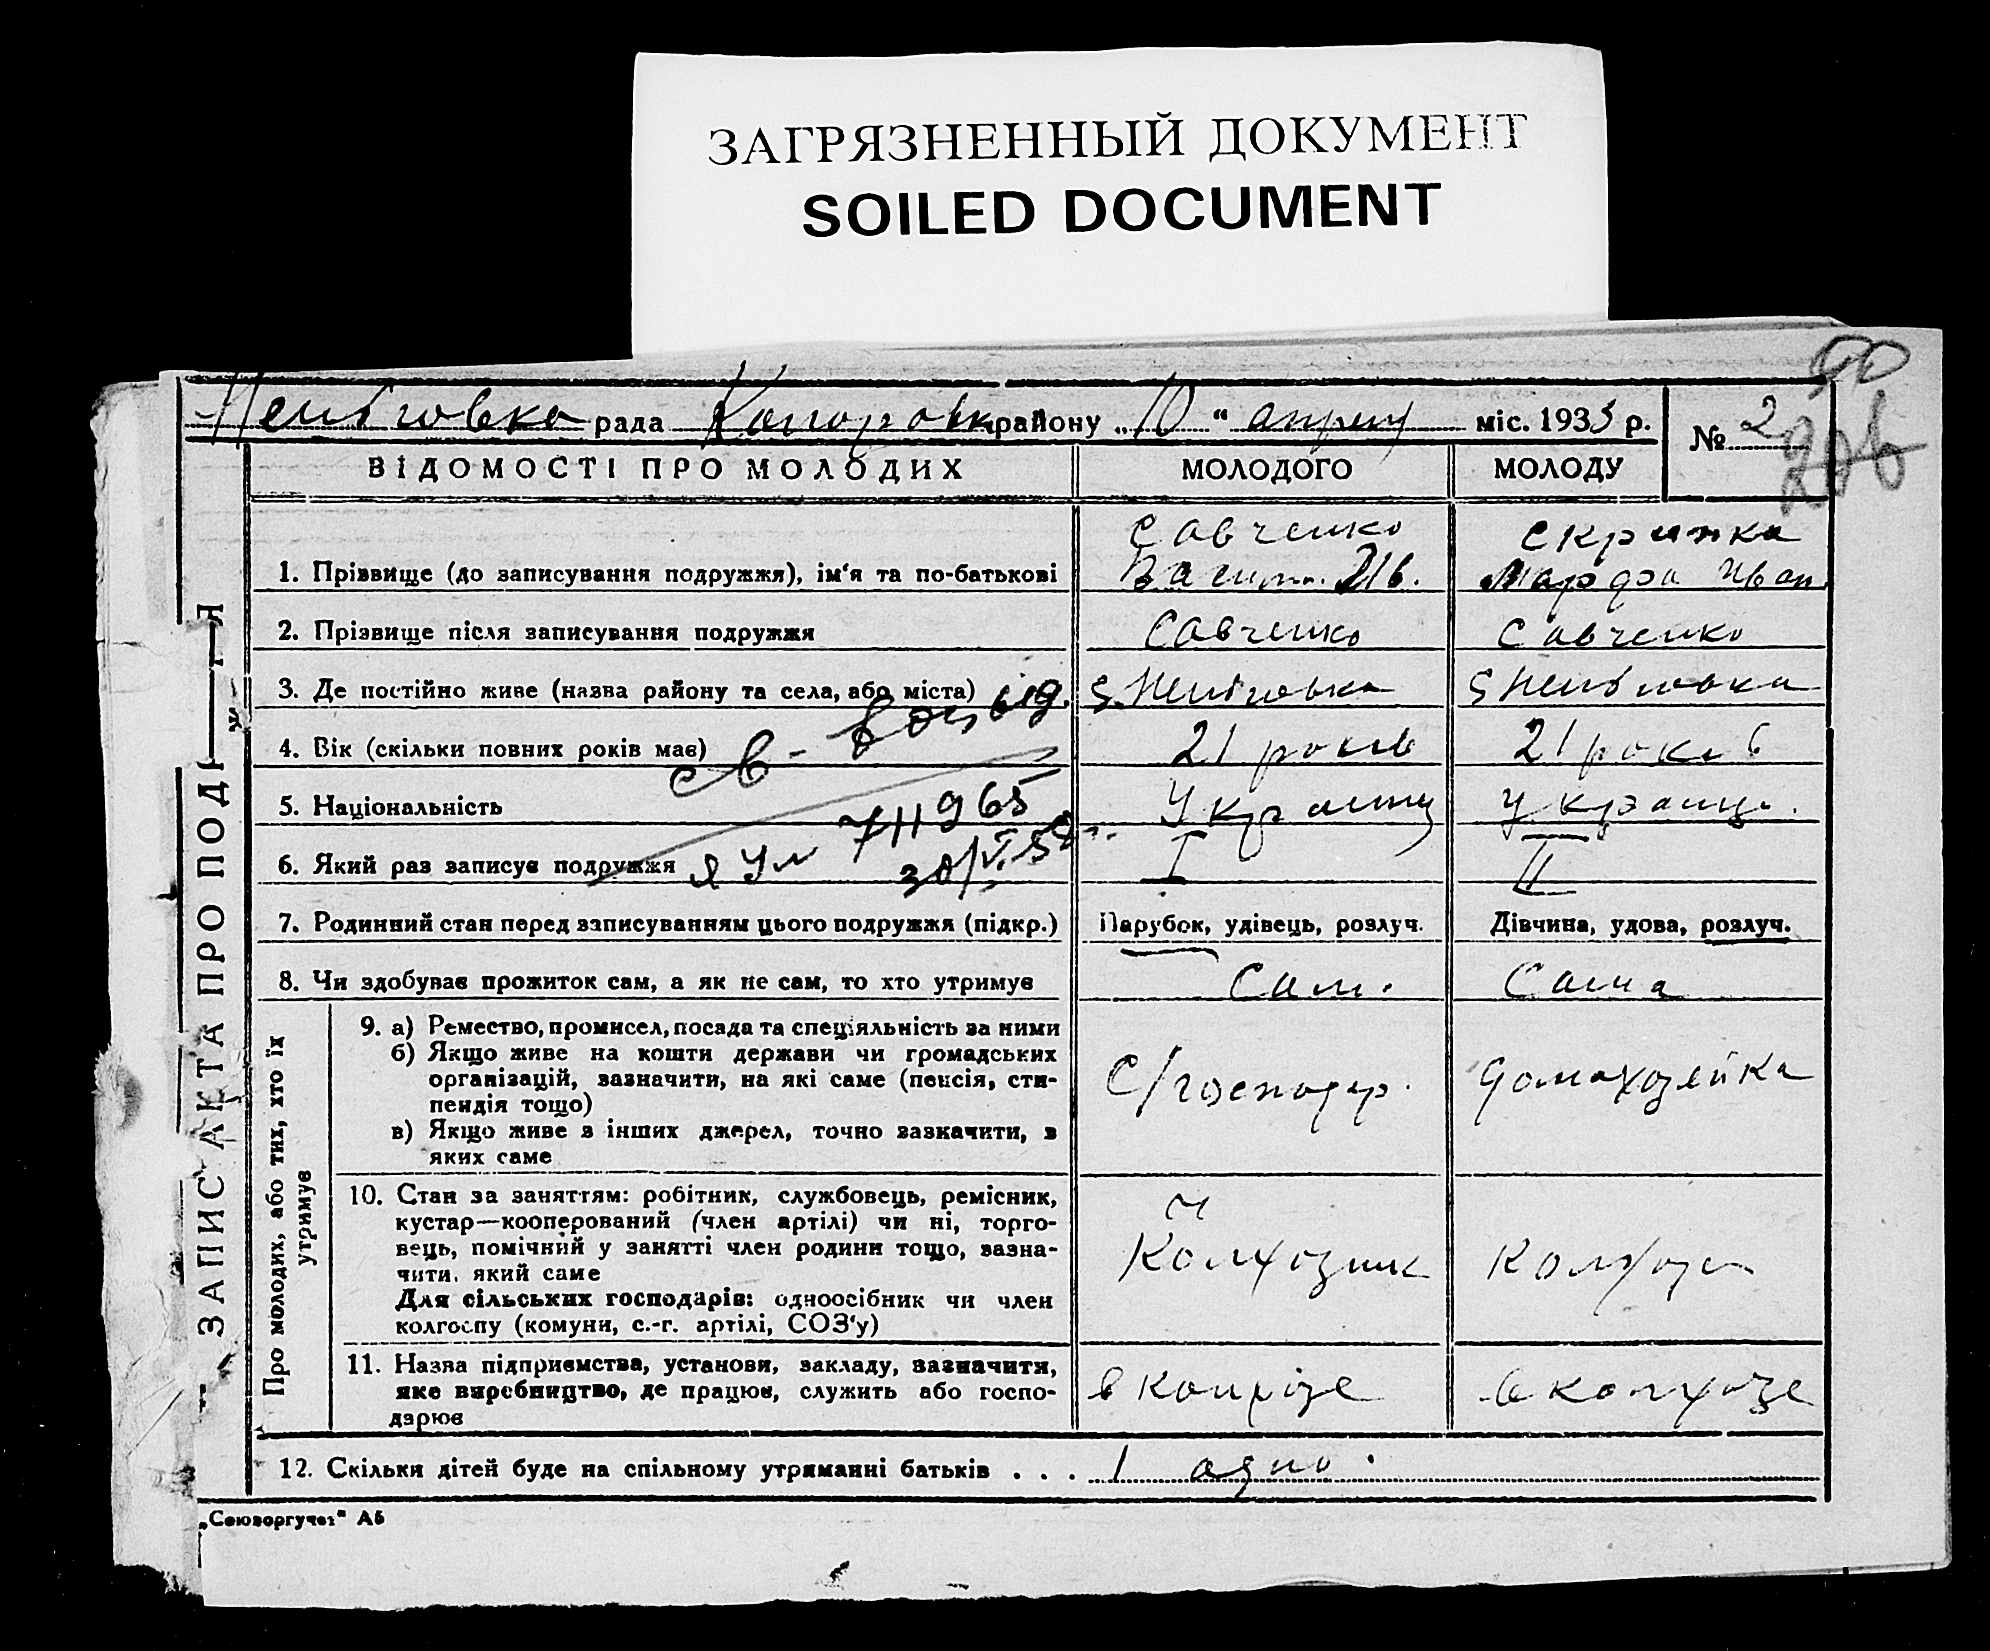 ЗАГРЯЗНЕННЫЙ ДОКУМЕНТ
SOILED DOCUMENT
90
рада району „ 10 “ апреля міс. 1933 р. № 2
ВІДОМОСТІ ПРО МОЛОДИХ МОЛОДОГО МОЛОДУ
Савченко Скрипка
1. Прізвище (до записування подружжя), ім'я та по-батькові Марфа Иван
2. Прізвище після записування подружжя Савченко Савченко
3. Де постійно живе (назва району та села, або міста)
4. Вік (скільки повних років має) 21 років 21 років
св-
5. Національність Украинец Украинц.
711965
6. Який раз записує подружжя I II
30/V.
7. Родинний стан перед записуванням цього подружжя (підкр.) Парубок, удівець, розлуч. Дівчина, удова, розлуч.
8. Чи здобуває прожиток сам, а як не сам, то хто утримує Сам. Сама
ЗАПИС АКТА ПРО ПОДР Я
Про молодих, або тих, хто їх
утримує
9. а) Ремество, промисел, посада та спеціяльність за ними
б) Якщо живе на кошти держави чи громадських
організацій, зазначити, на які саме (пенсія, сти-
пендія тощо)
в) Якщо живе з інших джерел, точно зазначити, з
яких саме
С/господар. домохозяйка
10. Стан за заняттям: робітник, службовець, ремісник,
кустар—кооперований (член артілі) чи ні, торго-
вець, помічний у занятті член родини тощо, зазна-
чити, який саме
Для сільських господарів: одноосібник чи член
колгоспу (комуни, с.-г. артілі, СОЗ'у)
Колхозник
11. Назва підприємства, установи, закладу, зазначити,
яке виробництво, де працює, служить або госпо-
дарює
в колхозе в колхозе
12. Скільки дітей буде на спільному утриманні батьків . . . 1 одно
„Союзоргучет“ А5